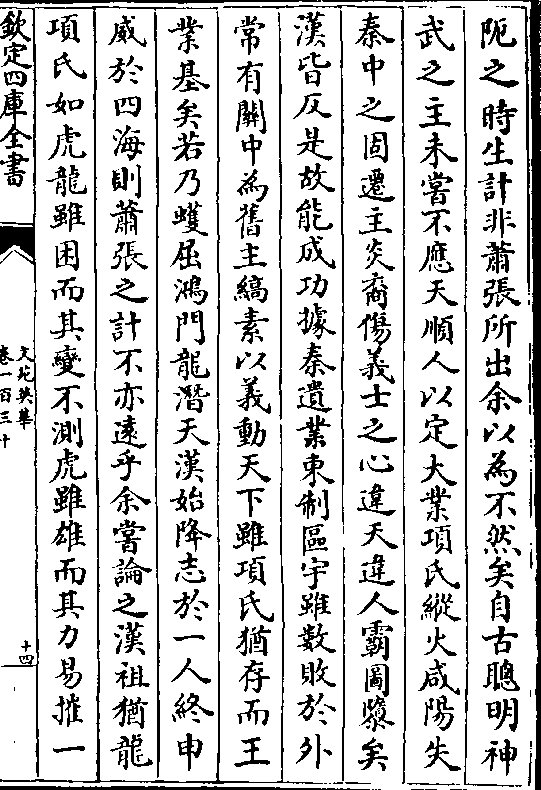 阨之時生計非蕭張所出余以為不然矣自古聰明神
武之主未嘗不應天順人以定大業項氏縱火咸陽失
秦中之固遷主炎裔傷義士之心違天違人霸圖隳矣
漢皆反是故能成功據秦遺業東制區宇雖數敗於外
常有關中為舊主縞素以義動天下雖項氏猶存而王
業基矣若乃蠖屈鴻門龍潛天漢始降志於一人終申
威於四海則蕭張之計不亦遠乎余嘗論之漢祖猶龍
項氏如虎龍雖困而其變不測虎雖雄而其力易摧一
欽定四庫全書
文苑英華
卷一百三十
十四